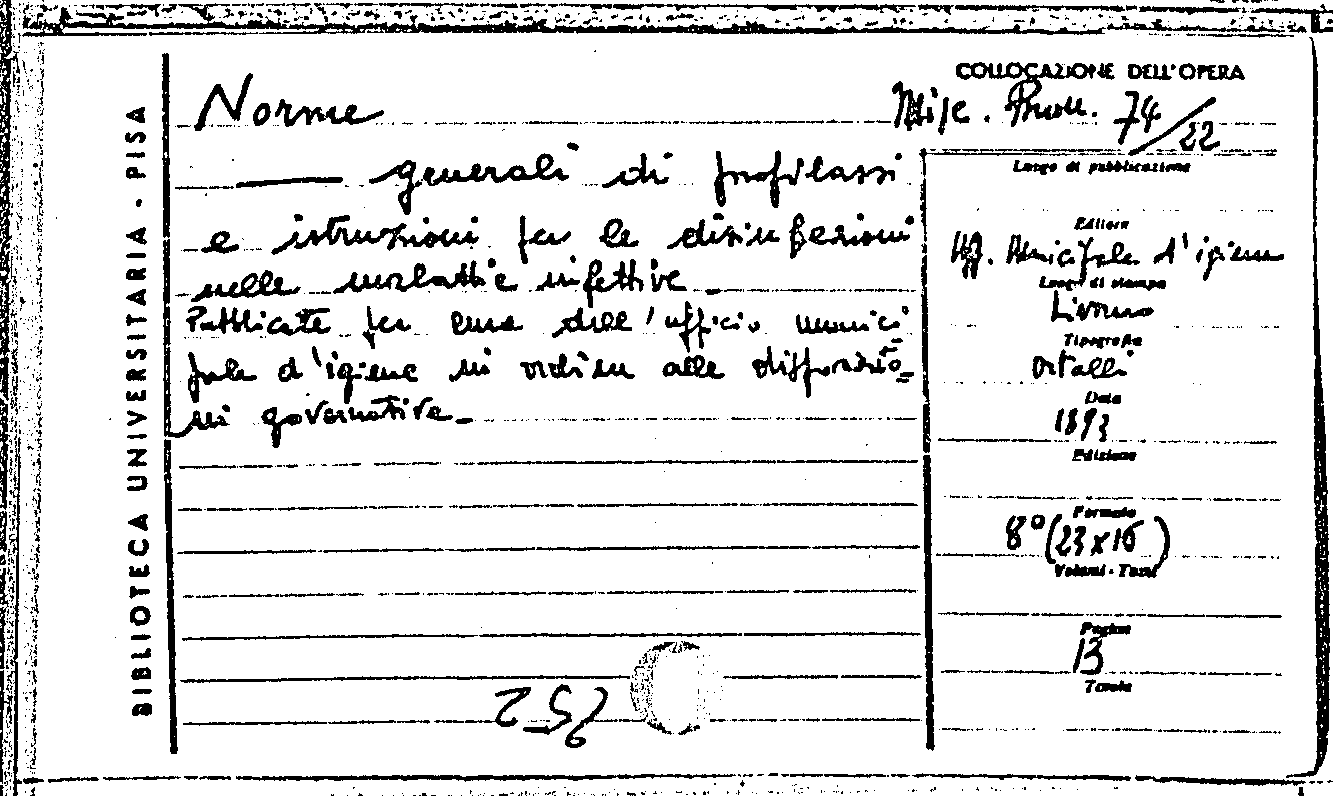 BIBLIOTECA UNIVERSITARIA - PISA
COLLOCAZIONE DELL'OPERA
Norme
Misc. 74/22
—— generali di profilassi
e istruzioni per le disinfezioni
nelle malattie infettive.
Pubblicate per cura dell'ufficio munici
pale d'igiene in ordine alle disposizio=
ni governative.
Luogo di pubblicazione
Editore
Uff. Municipale d'igiene
Luogo di stampa
Livorno
Tipografia
Ortalli
Data
1893
Edizione
Formato
8° (23 x 16)
Volumi - Tomi
Pagine
13
Tavole